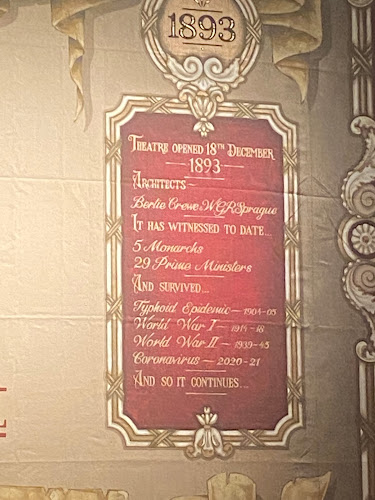 1893
THEATRE OPENED 18TH DECEMBER
1893
ARCHITECTS~
Bertie Crewe W.G.R Sprague
IT HAS WITNESSED TO DATE...
5 Monarchs
29 Prime Ministers
AND SURVIVED...
Typhoid Epidemic – 1904-05
World War I – 1914-18
World War II – 1939-45
Coronavirus – 2020-21
AND SO IT CONTINUES...